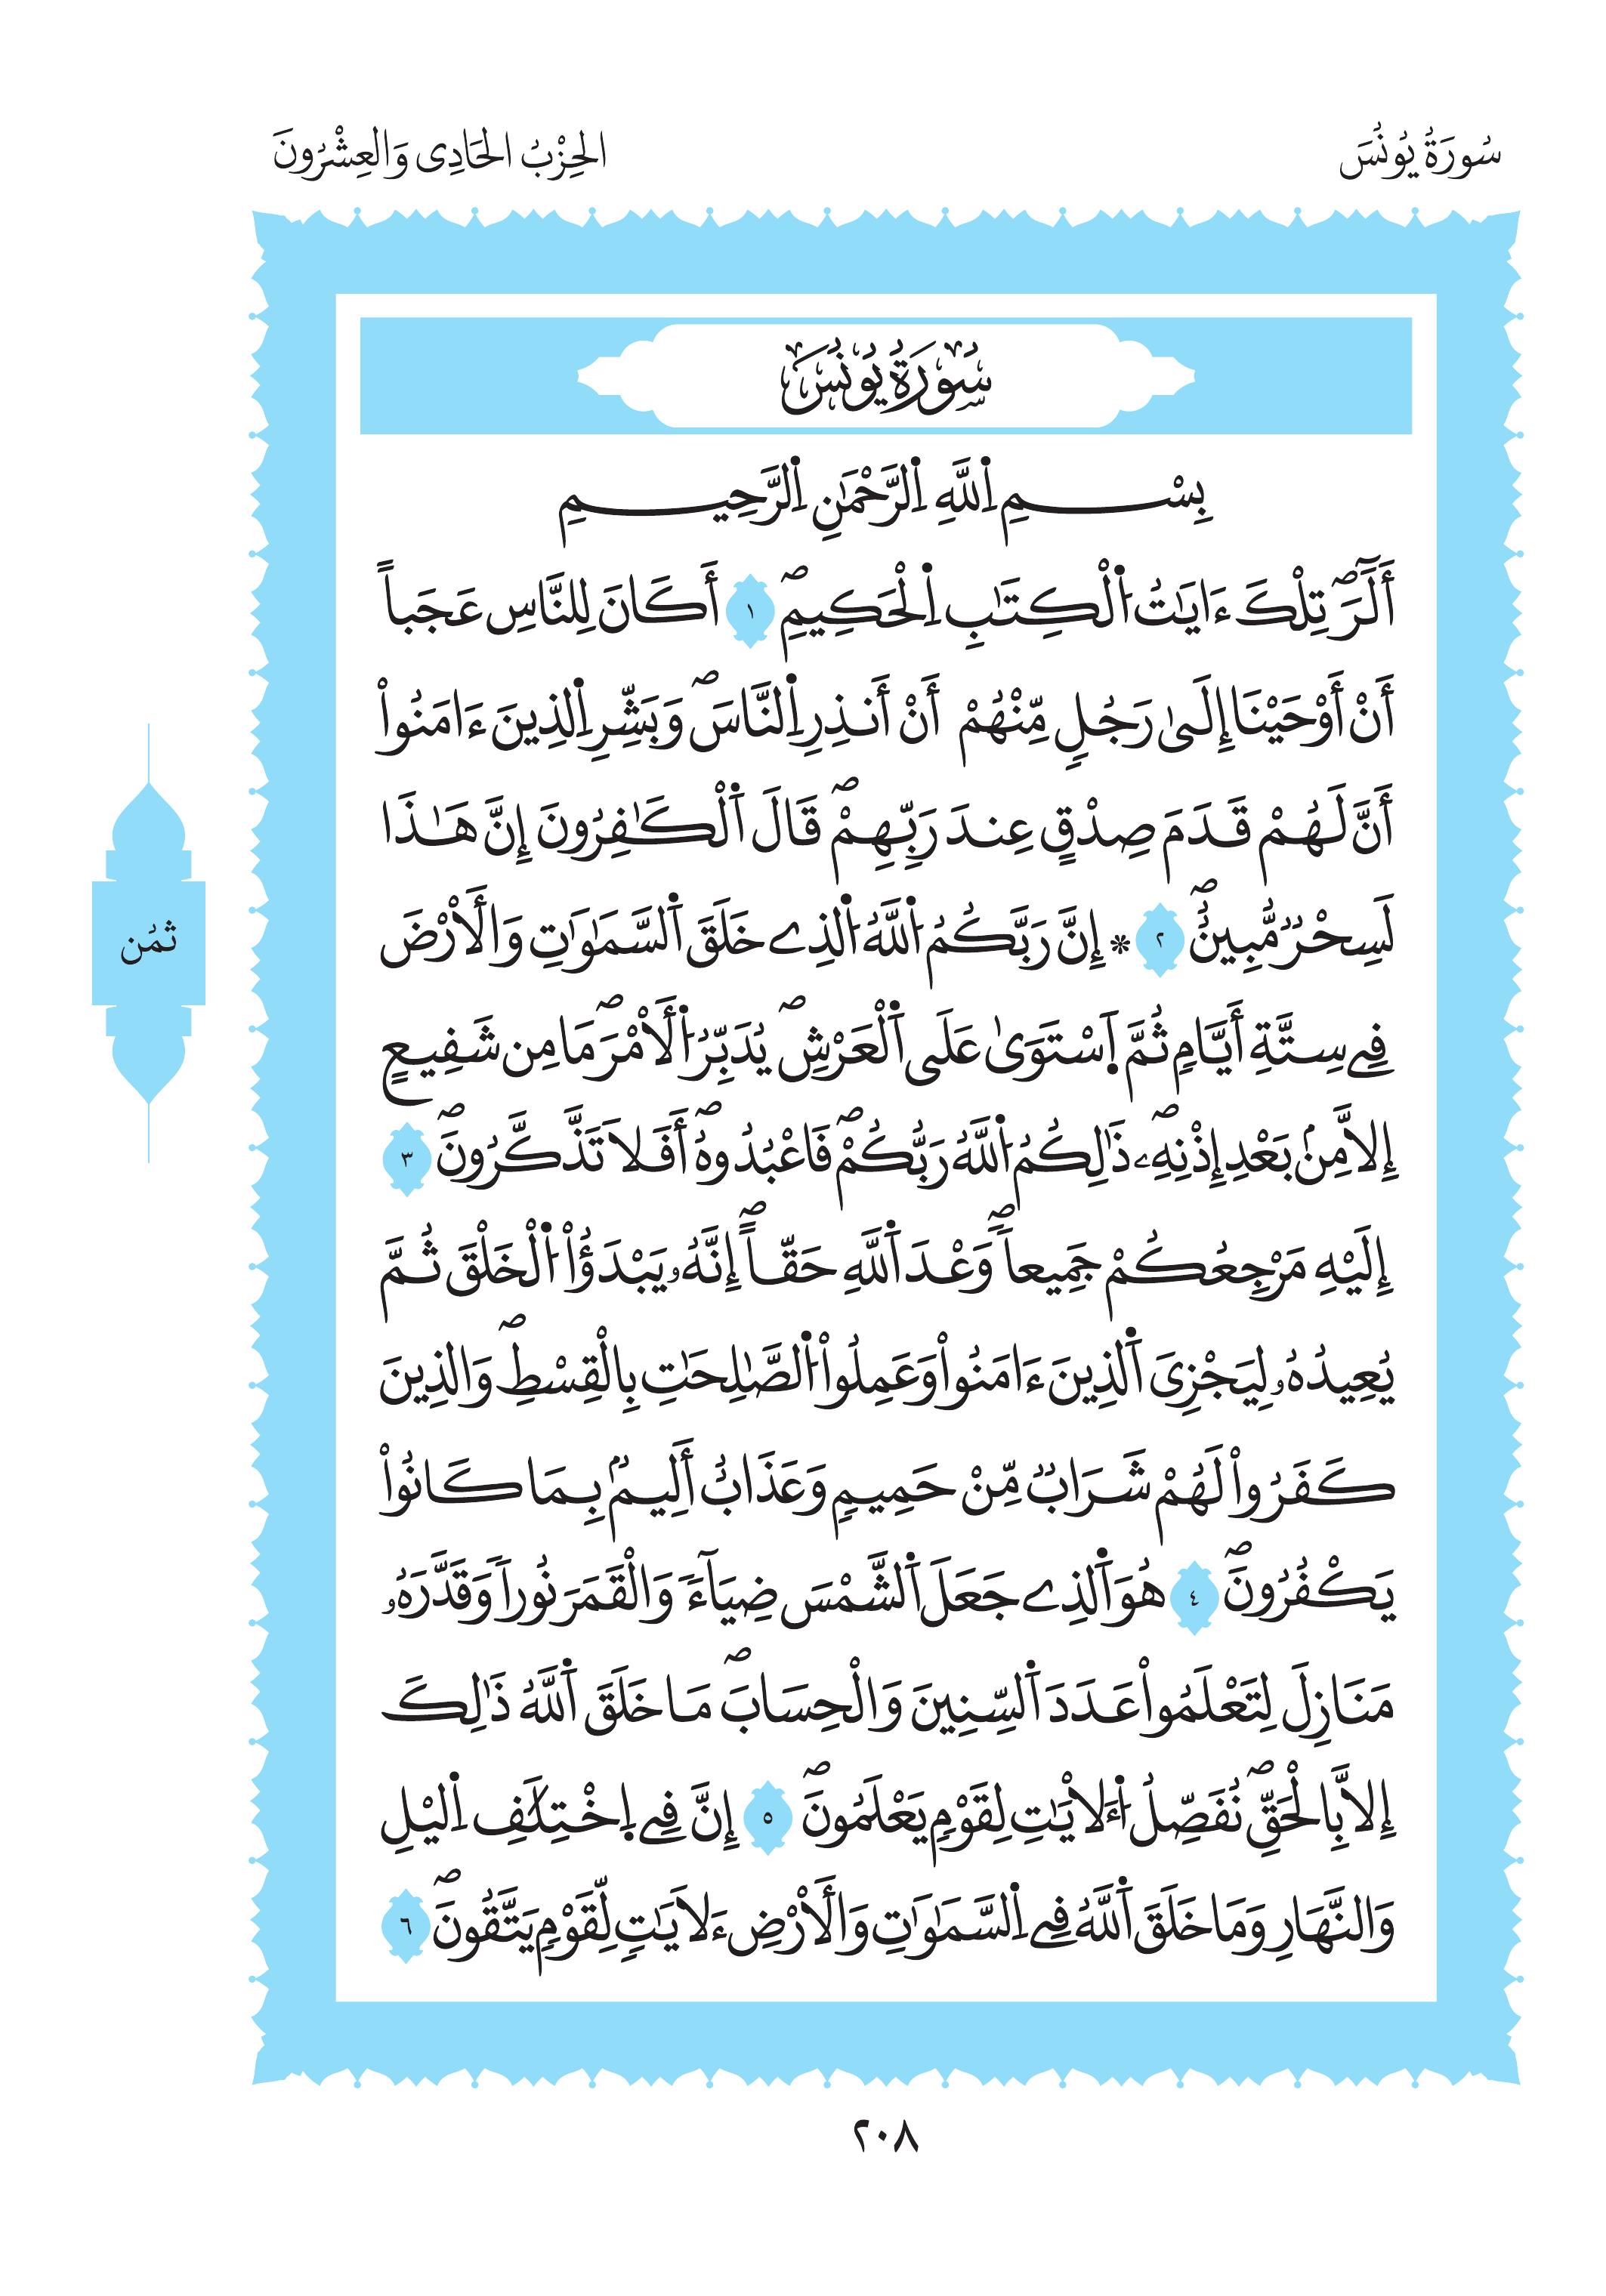 سُورَةُ يُونُسَ
الحِزْبُ الحَادِى وَالعِشْرُونَ
سُورَةُ يُونُسَ
بِسْمِ اِ۬للَّهِ اِ۬لرَّحْمَٰنِ اِ۬لرَّحِيمِ
أَلَٓرَۖ تِلْكَ ءَايَٰتُ اُ۬لْكِتَٰبِ اِ۬لْحَكِيمِۖ ١ أَكَانَ لِلنَّاسِ عَجَباً
أَنْ أَوْحَيْنَا إِلَىٰ رَجُلٍ مِّنْهُمْ أَنْ أَنذِرِ اِ۬لنَّاسَۖ وَبَشِّرِ اِ۬لذِينَ ءَامَنُواْ
أَنَّ لَهُمْ قَدَمَ صِدْقٍ عِندَ رَبِّهِمْۖ قَالَ اَ۬لْكَٰفِرُونَ إِنَّ هَٰذَا
لَسِحْرٌ مُّبِينٌۖ ٢ * إِنَّ رَبَّكُمُ اُ۬للَّهُ اُ۬لذِے خَلَقَ اَ۬لسَّمَٰوَٰتِ وَالْأَرْضَ
فِے سِتَّةِ أَيَّامٍ ثُمَّ اَ۪سْتَوَىٰ عَلَى اَ۬لْعَرْشِۖ يُدَبِّرُ اُ۬لْأَمْرَۖ مَا مِن شَفِيعٍ
إِلاَّ مِنۢ بَعْدِ إِذْنِهِۦۖ ذَٰلِكُمُ اُ۬للَّهُ رَبُّكُمْۖ فَاعْبُدُوهُۖ أَفَلاَ تَذَّكَّرُونَۖ ٣
إِلَيْهِ مَرْجِعُكُمْ جَمِيعاًۖ وَعْدَ اَ۬للَّهِ حَقّاًۖ إِنَّهُۥ يَبْدَؤُاْ اُ۬لْخَلْقَ ثُمَّ
يُعِيدُهُۥ لِيَجْزِىَ اَ۬لذِينَ ءَامَنُواْ وَعَمِلُواْ اُ۬لصَّٰلِحَٰتِ بِالْقِسْطِۖ وَالذِينَ
كَفَرُواْ لَهُمْ شَرَابٌ مِّنْ حَمِيمٍ وَعَذَابٌ أَلِيمٌۢ بِمَا كَانُواْ
يَكْفُرُونَۖ ٤ هُوَ اَ۬لذِے جَعَلَ اَ۬لشَّمْسَ ضِيَآءً وَالْقَمَرَ نُوراً وَقَدَّرَهُۥ
مَنَازِلَ لِتَعْلَمُواْ عَدَدَ اَ۬لسِّنِينَ وَالْحِسَابَۖ مَا خَلَقَ اَ۬للَّهُ ذَٰلِكَ
إِلاَّ بِالْحَقِّۖ نُفَصِّلُ اُ۬لْأٓيَٰتِ لِقَوْمٍ يَعْلَمُونَۖ ٥ إِنَّ فِے اِ۪خْتِلَٰفِ اِ۬ليْلِ
وَالنَّهَارِ وَمَا خَلَقَ اَ۬للَّهُ فِے اِ۬لسَّمَٰوَٰتِ وَالْأَرْضِ ءَلاَيَٰتٍ لِّقَوْمٍ يَتَّقُونَۖ ٦
ثمُن
٢٠٨